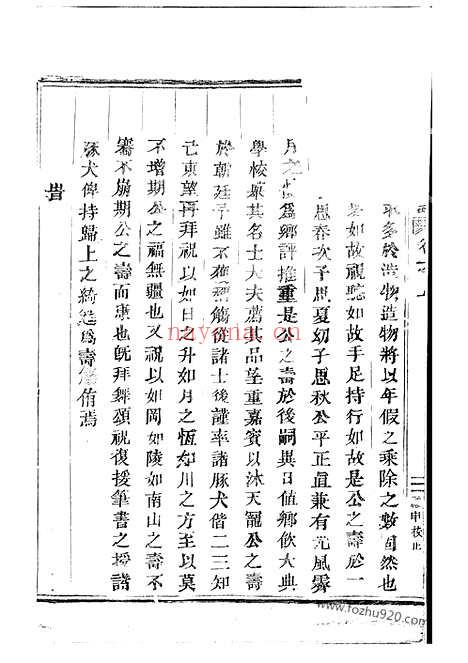 取多於造物造物將以年假之乘除之數固然也
如故視聽如故手足持行如故是公之壽於一
思春次子思夏幼子思秋公平正直兼有光風霽
月之 爲鄉評推重是公之壽於後嗣異日值鄉飲大典
學校 其名士大夫薦其品望重嘉賓以沐天寵公之壽
於朝廷予雖不獲 觴從諸士後謹率諸豚犬偕二三知
已東望再拜祝以如日之升如月之恆如川之方至以莫
不增期公之福無疆也又祝以如岡如陵如南山之壽不
騫不崩期公之壽而康也旣拜舞頌祝復援筆書之授諸
豚犬俾持歸上之綺筵爲壽 侑焉
nayona.com
www.fozhu920.com